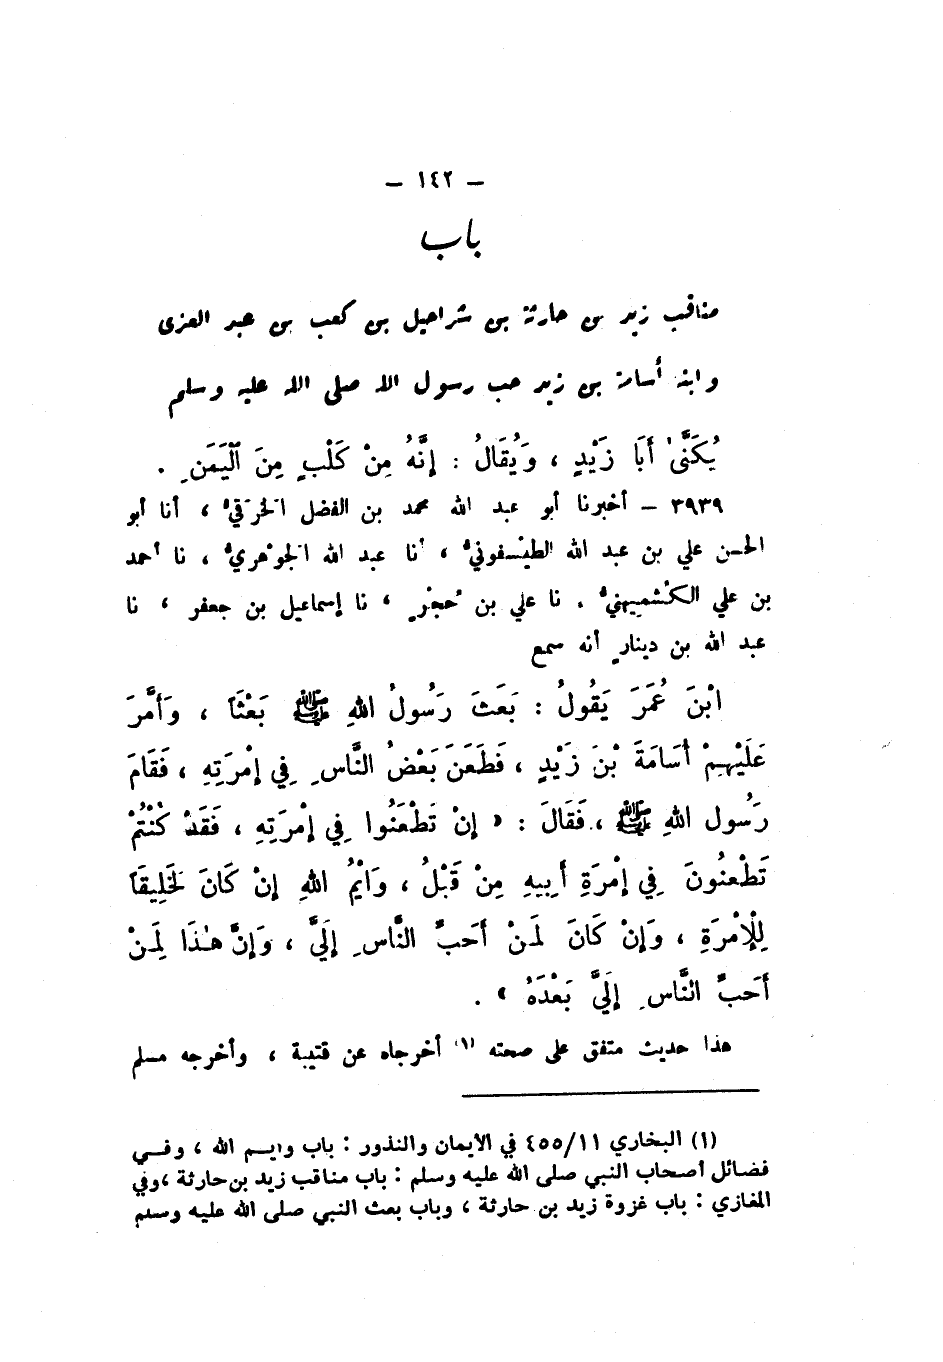 — ١٤٢ —
باب
مناقب زيد بن حارثة بن شراحيل بن كعب بن عبد العزى
وابنه أسامة بن زيد حب رسول الله صلى الله عليه وسلم
يُكَنَّىٰ أَبَا زَيْدٍ ، وَيُقَالُ : إِنَّهُ مِنْ كَلْبٍ مِنَ ٱلْيَمَنِ .
٣٩٣٩ — أخبرنا أبو عبد الله محمد بن الفضل الخَرَقيُّ ، أنا أبو
الحسن علي بن عبد الله الطَيْسَفونيُّ ، أنا عبد الله الجَوْهريُّ ، نا أحمد
بن علي الكُشْمِيهنيُّ . نا علي بن حُجْرٍ ، نا إسماعيل بن جعفر ، نا
عبد الله بن دينارٍ أنه سمع
ابْنَ عُمَرَ يَقُولُ : بَعَثَ رَسُولُ اللهِ ﷺ بَعْثَاً ، وَأَمَّرَ
عَلَيْهِمْ أُسَامَةَ بْنَ زَيْدٍ ، فَطَعَنَ بَعْضُ النَّاسِ فِي إِمْرَتِهِ ، فَقَامَ
رَسُول اللهِ ﷺ ، فَقَالَ : « إِنْ تَطْعَنُوا فِي إِمْرَتِهِ ، فَقَدْ كُنْتُمْ
تَطْعنُونَ فِي إِمْرَةِ أَبِيهِ مِنْ قَبْلُ ، وَايْمُ اللهِ إِنْ كَانَ لَخَلِيقَاً
لِلْإِمْرَةِ ، وَإِنْ كَانَ لَمَنْ أَحَبِّ النَّاسِ إِلَيَّ ، وَإِنَّ هٰذَا لَمَنْ
أَحَبِّ النَّاسِ إِلَيَّ بَعْدَهُ » .
هذا حديث متفق على صحته (١) أخرجاه عن قتيبة ، وأخرجه مسلم
(١) البخاري ٤٥٥/١١ في الأيمان والنذور : باب وايم الله ، وفي
فضائل أصحاب النبي صلى الله عليه وسلم : باب مناقب زيد بن حارثة ، وفي
المغازي : باب غزوة زيد بن حارثة ، وباب بعث النبي صلى الله عليه وسلم